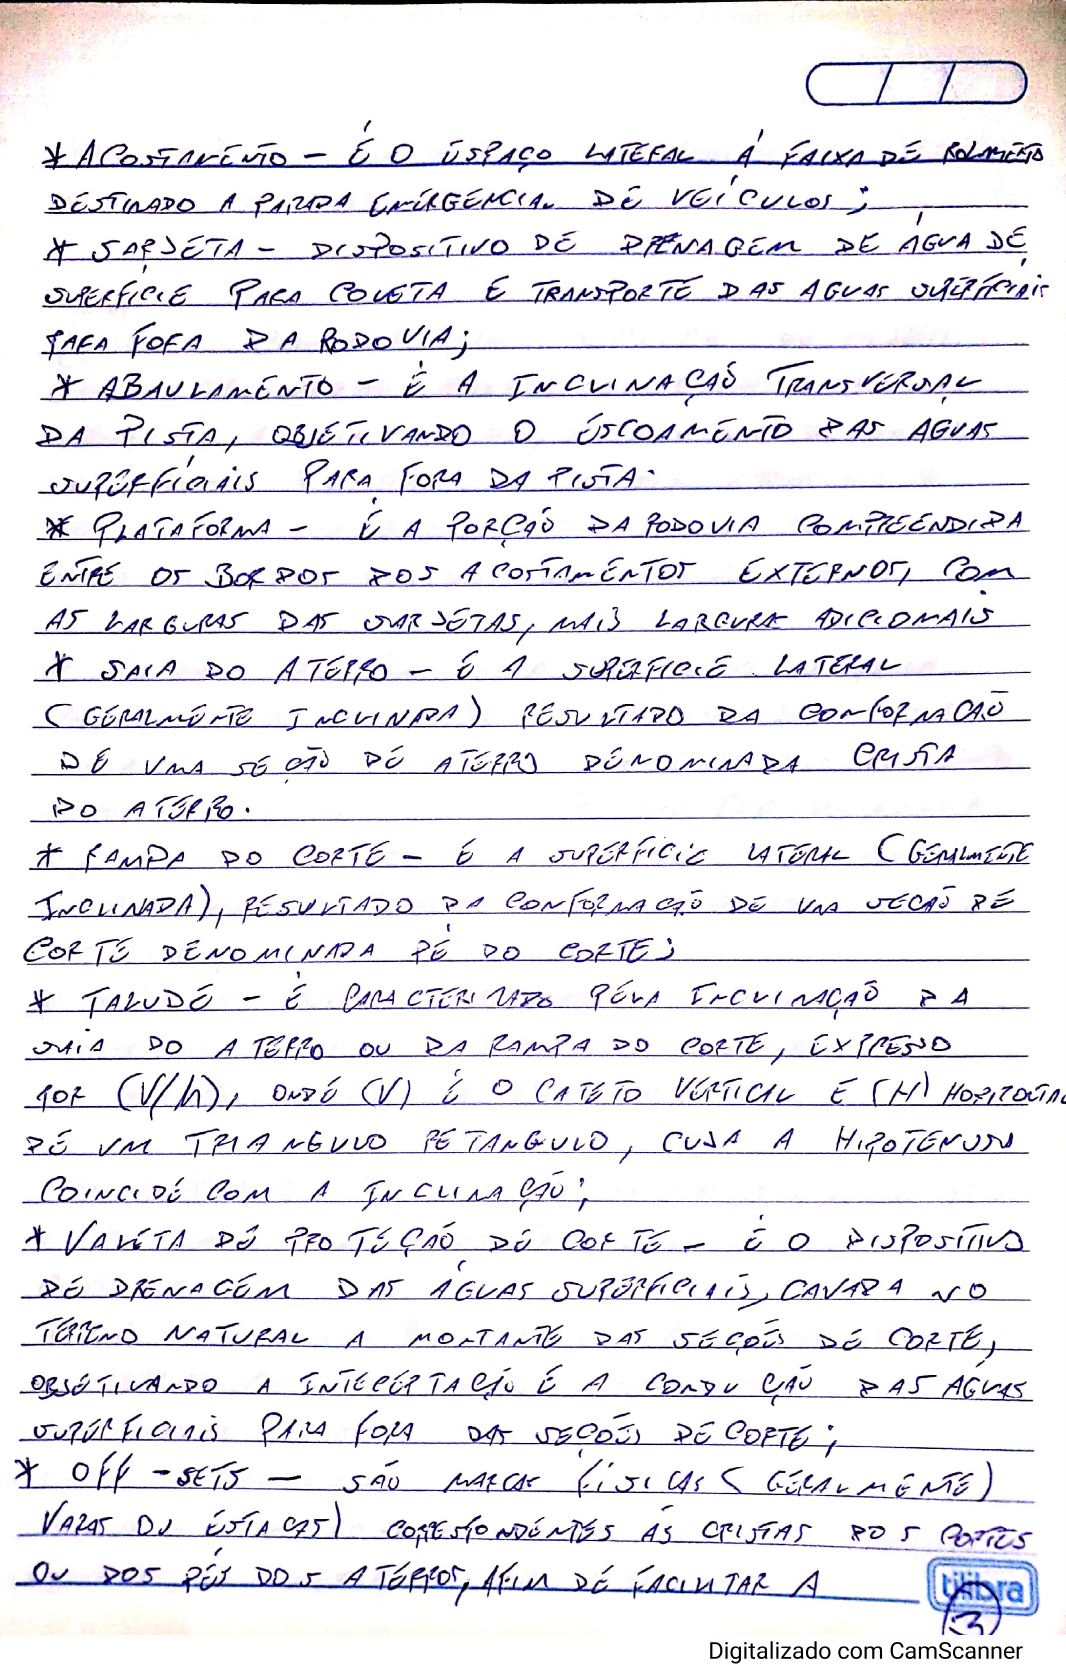 * ACOSTAMENTO - É O ESPAÇO LATERAL À FAIXA DE ROLAMENTO
DESTINADO A PARADA EMERGENCIAL DE VEÍCULOS;
* SARJETA - DISPOSITIVO DE DRENAGEM DE ÁGUA DE
SUPERFÍCIE PARA COLETA E TRANSPORTE DAS AGUAS SUPERFICIAIS
PARA FORA DA RODOVIA;
* ABAULAMENTO - É A INCLINAÇÃO TRANSVERSAL
DA PISTA, OBJETIVANDO O ESCOAMENTO DAS AGUAS
SUPERFICIAIS PARA FORA DA PISTA.
* PLATAFORMA - É A PORÇÃO DA RODOVIA COMPREENDIDA
ENTRE OS BORDOS DOS ACOSTAMENTOS EXTERNOS, COM
AS LARGURAS DAS SARJETAS, MAIS LARGURA ADICIONAIS
* SAIA DO ATERRO - É A SUPERFICIE LATERAL
(GERALMENTE INCLINADA) RESULTADO DA CONFORMAÇÃO
DE UMA SEÇÃO DE ATERRO DENOMINADA CRISTA
DO ATERRO.
* RAMPA DO CORTE - É A SUPERFICIE LATERAL (GERALMENTE
INCLINADA), RESULTADO DA CONFORMAÇÃO DE UMA SECAÕ DE
CORTE DENOMINADA PÉ DO CORTE;
* TALUDE - É CARACTERIZADO PELA INCLINAÇÃO DA
SAIA DO ATERRO OU DA RAMPA DO CORTE, EXPRESSO
POR (V/h), ONDE (V) É O CATETO VERTICAL E (H) HORIZONTAL
DE UM TRIANGULO RETANGULO, CUJA A HIPOTENUSA
COINCIDE COM A INCLINAÇÃO;
* VALETA DE PROTEÇÃO DE CORTE - É O DISPOSITIVO
DE DRENAGEM DAS ÁGUAS SUPERFICIAIS, CAVADA NO
TERRENO NATURAL A MONTANTE DAS SEÇÕES DE CORTE,
OBJETIVANDO A INTERCEPTAÇÃO E A CONDUÇÃO DAS AGUAS
SUPERFICIAIS PARA FORA DAS SEÇÕES DE CORTE;
* OFF-SETS - SÃO MARCAS FÍSICAS (GERALMENTE)
VARAS OU ESTACAS) CORRESPONDENTES ÁS CRISTAS DOS CORTES
OU DOS PÉS DOS ATERROS, AFIM DE FACILITAR A
tilibra
3
Digitalizado com CamScanner